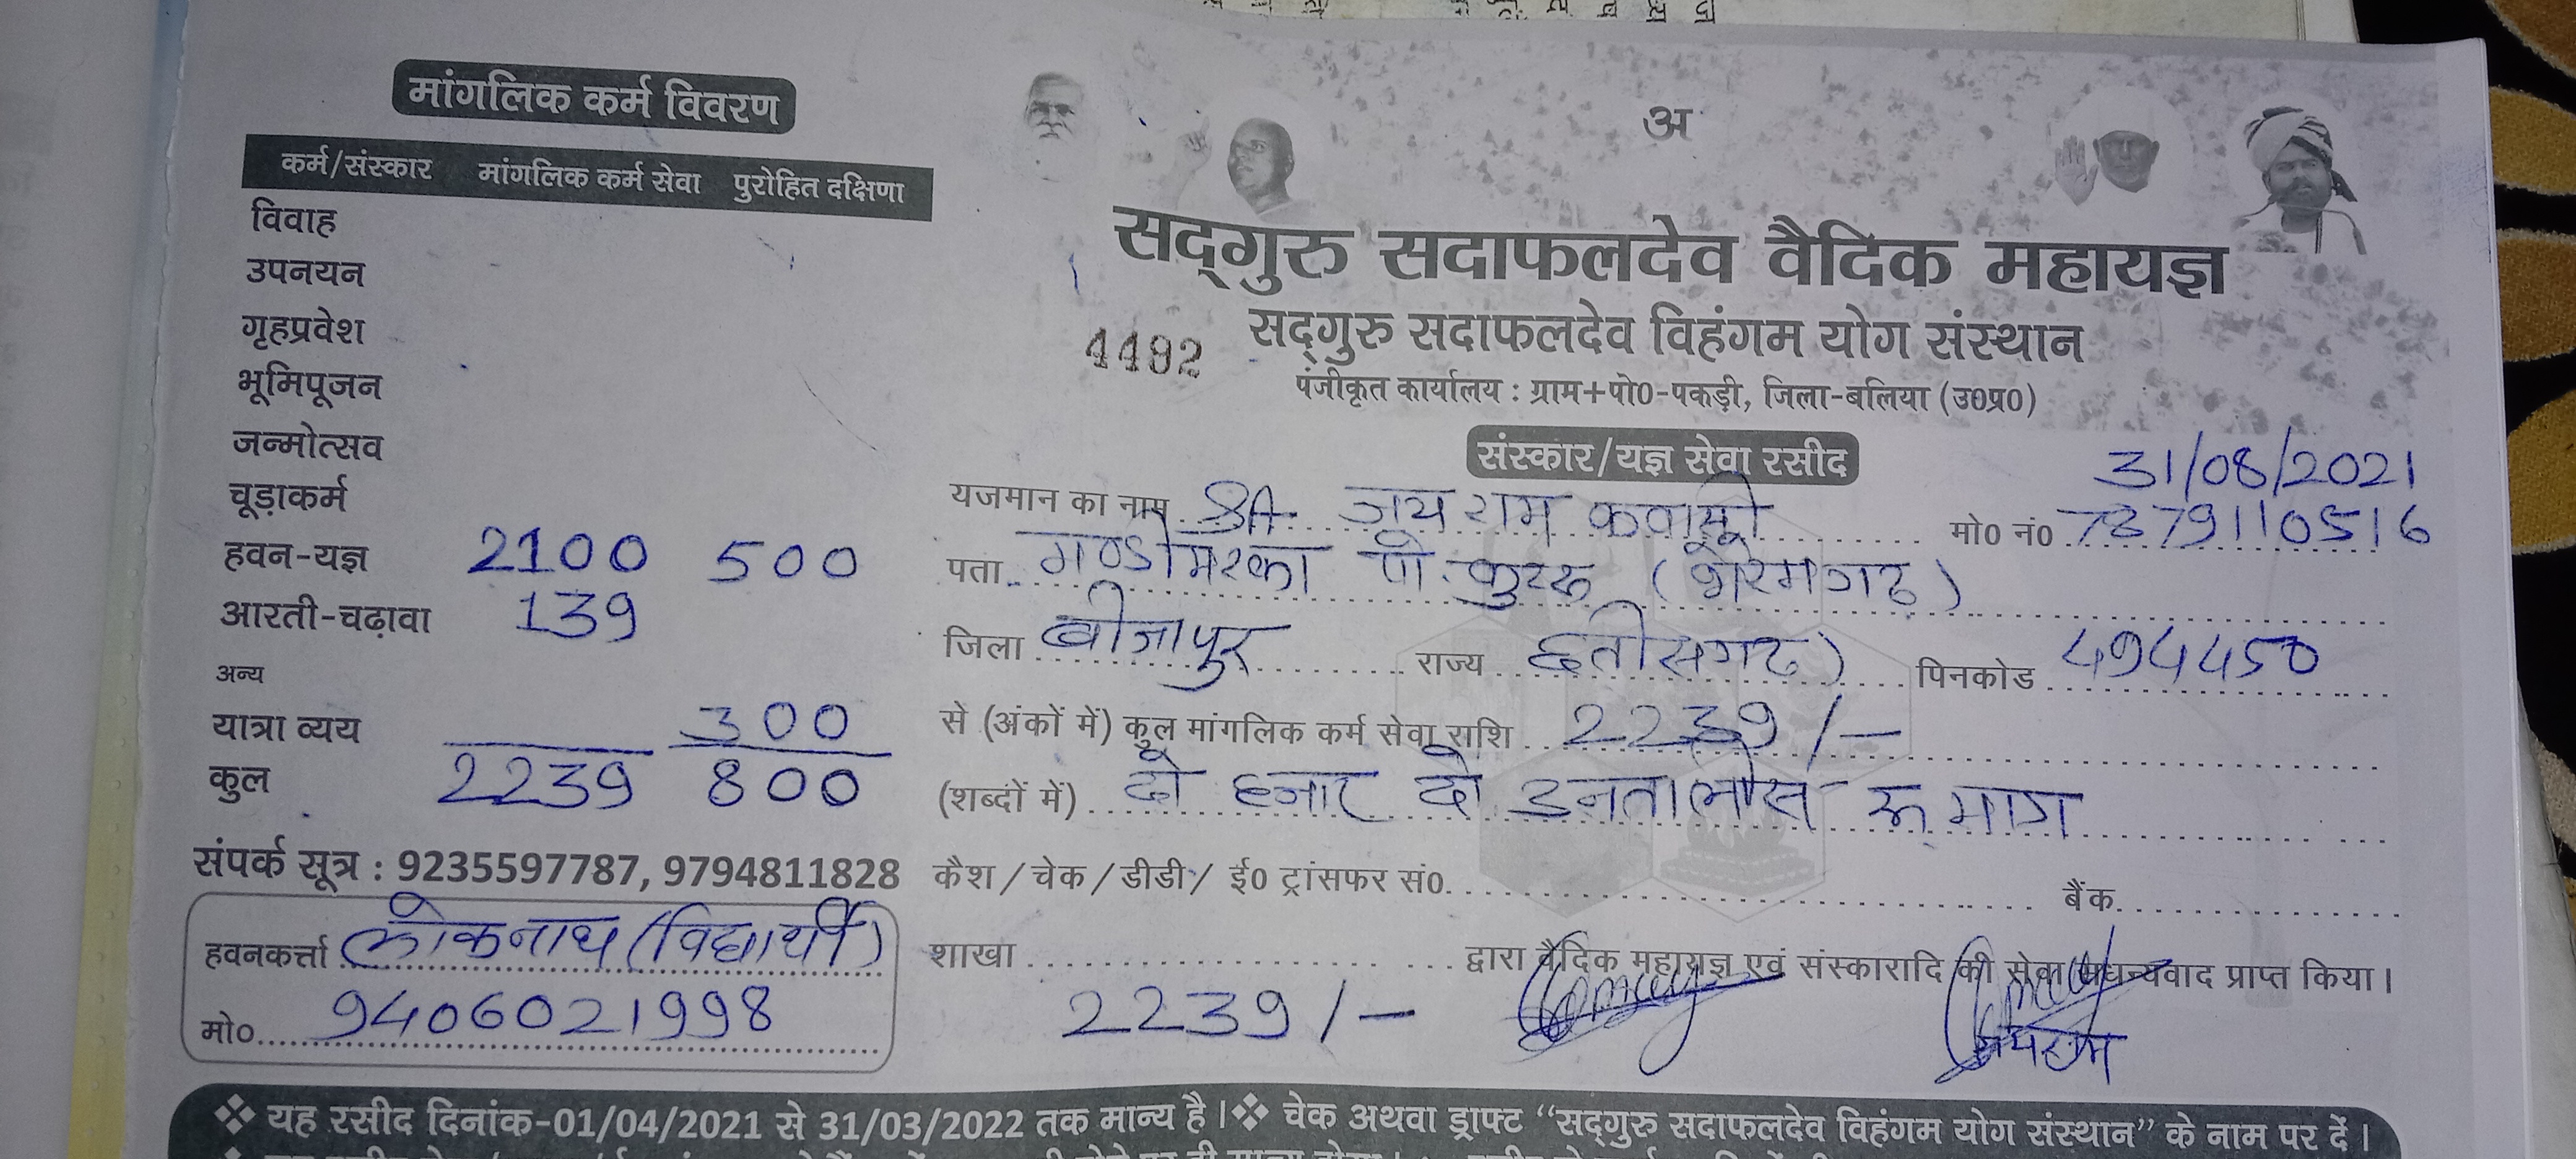 मांगलिक कर्म विवरण
कर्म/संस्कार मांगलिक कर्म सेवा पुरोहित दक्षिणा
विवाह
उपनयन
गृहप्रवेश
भूमिपूजन
जन्मोत्सव
चूड़ाकर्म
हवन-यज्ञ 2100 500
आरती-चढ़ावा 139
अन्य
यात्रा व्यय 300
कुल 2239 800
संपर्क सूत्र : 9235597787, 9794811828
हवनकर्त्ता लोकनाथ (विद्यार्थी)
मो० 9406021998
अ
सद्‌गुरु सदाफलदेव वैदिक महायज्ञ
4492 सद्‌गुरु सदाफलदेव विहंगम योग संस्थान
पंजीकृत कार्यालय : ग्राम+पो0-पकड़ी, जिला-बलिया (उ0प्र0)
संस्कार/यज्ञ सेवा रसीद
31/08/2021
यजमान का नाम श्री जयराम कवासी मो0 नं0 7879110516
पता (भैरमगढ़)
जिला बीजापुर राज्य छतीसगढ़) पिनकोड 494450
से (अंकों में) कुल मांगलिक कर्म सेवा राशि 2239/-
(शब्दों में) दो हजार दो उनतालीस रू मात्र
कैश/चेक/डीडी/ ई0 ट्रांसफर सं0 बैंक
शाखा द्वारा वैदिक महायज्ञ एवं संस्कारादि की सेवा सधन्यवाद प्राप्त किया।
2239/- जयराम
❖ यह रसीद दिनांक-01/04/2021 से 31/03/2022 तक मान्य है। ❖ चेक अथवा ड्राफ्ट “सद्‌गुरु सदाफलदेव विहंगम योग संस्थान” के नाम पर दें।